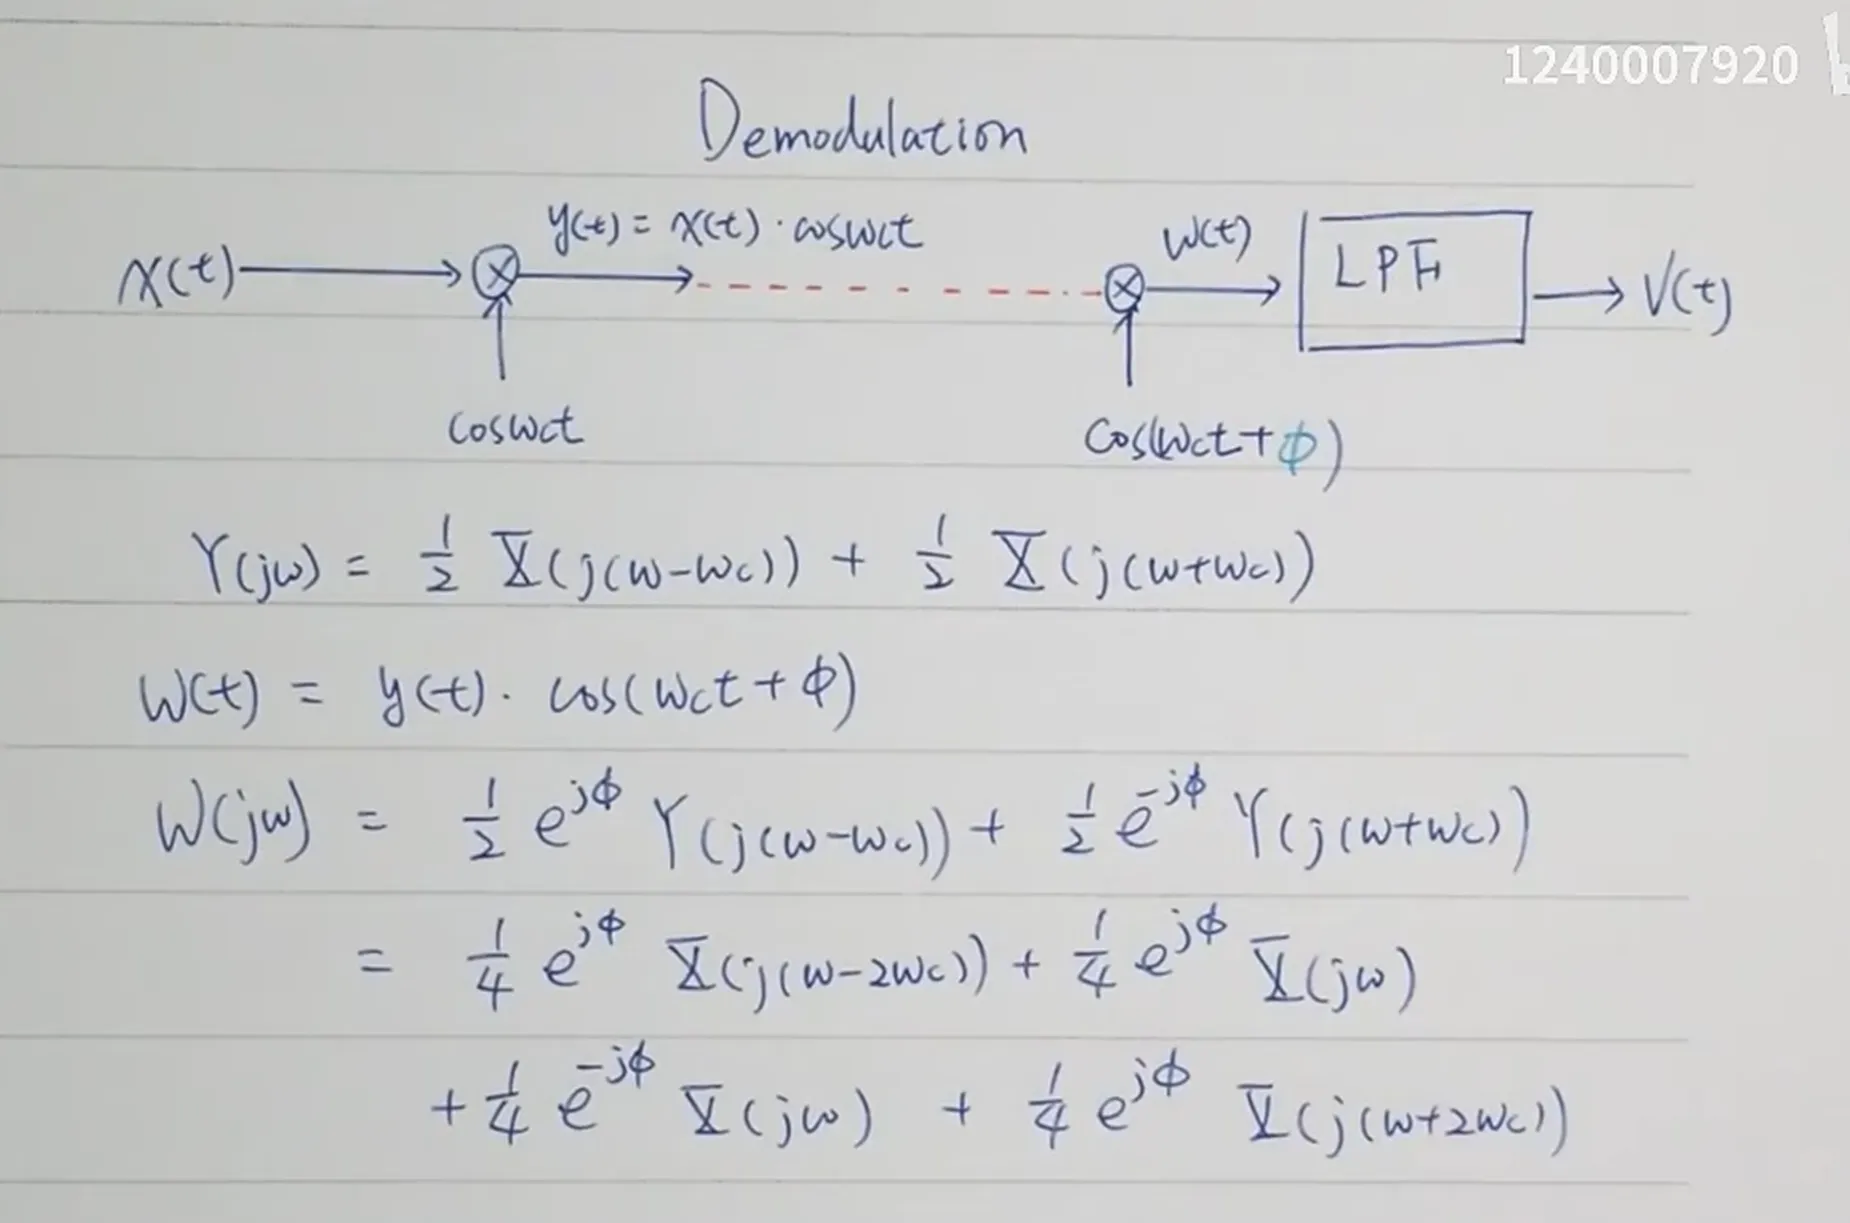 1240007920
Demodulation
x(t) y(t) = x(t) · cosωct w(t) LPF v(t)
cosωct cos(ωct + ϕ)
Y(jω) = 1/2 X(j(ω-ωc)) + 1/2 X(j(ω+ωc))
w(t) = y(t) · cos(ωct + ϕ)
W(jω) = 1/2 e^jϕ Y(j(ω-ωc)) + 1/2 e^-jϕ Y(j(ω+ωc))
= 1/4 e^jϕ X(j(ω-2ωc)) + 1/4 e^jϕ X(jω)
+ 1/4 e^-jϕ X(jω) + 1/4 e^jϕ X(j(ω+2ωc))